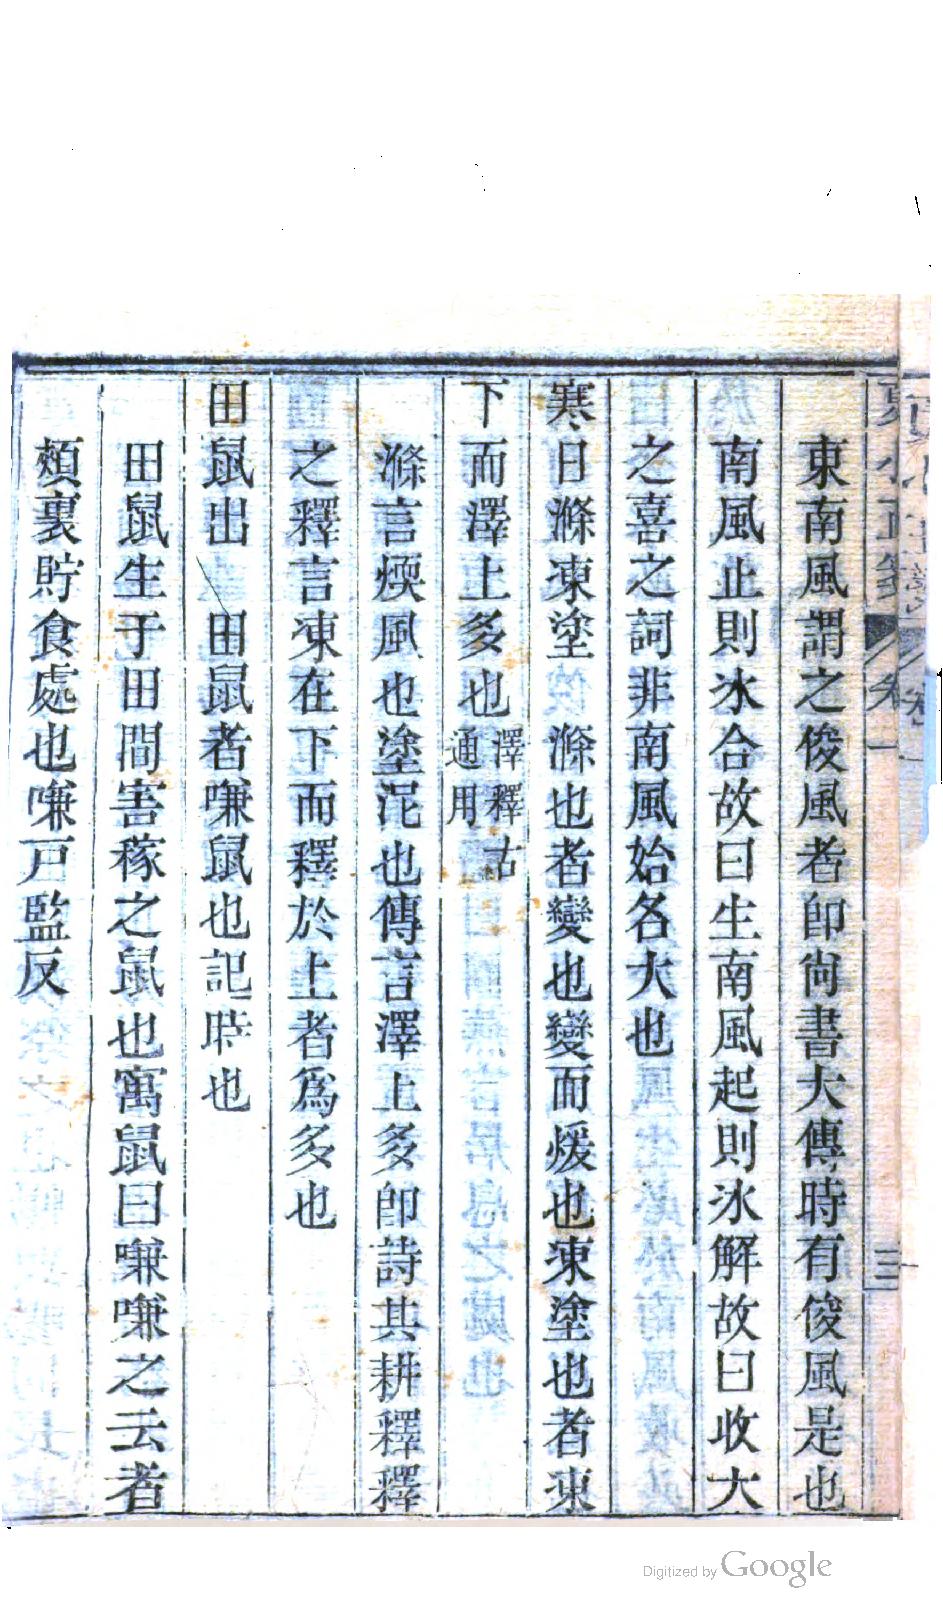 東南風謂之俊風者卽尙書大傳時有俊風是也
南風止則冰合故曰生南風起則冰解故曰收大
之喜之詞非南風始名大也
寒日滌凍塗　滌也者變也變而煖也凍塗也者凍
下而澤上多也澤釋古通用
滌言煗風也塗泥也傳言澤上多卽詩其耕釋釋
之釋言凍在下而釋於上者爲多也
田鼠出　田鼠者嗛鼠也記時也
田鼠生于田間害稼之鼠也寓鼠曰嗛嗛之云者
頰裏貯食處也嗛戸監反
Digitized by Google